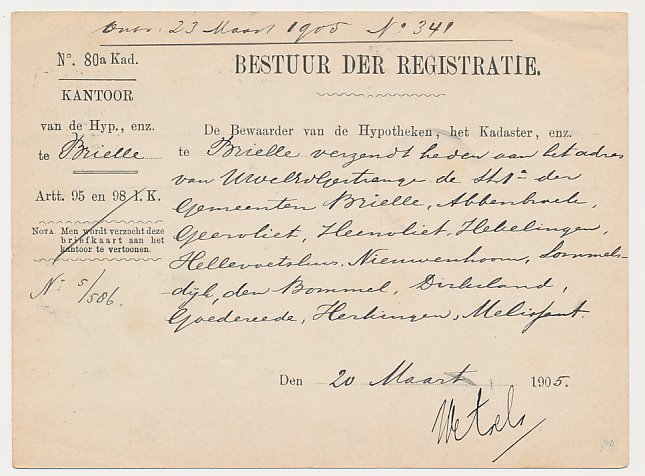 Ontv. 23 Maart 1905 No 341
No. 80a Kad.
KANTOOR
van de Hyp., enz.
te Brielle
Artt. 95 en 98 I. K.
NOTA. Men wordt verzocht deze
briefkaart aan het
kantoor te vertoonen.
No 5/586.
BESTUUR DER REGISTRATIE.
De Bewaarder van de Hypotheken, het Kadaster, enz.
te Brielle verzendt heden aan het adres
van UwelEdelgestrenge de der
Gemeenten Brielle, Abbenbroek,
Geervliet, Heenvliet, Hekelingen,
Hellevoetsluis, Nieuwenhoorn, Sommels-
dijk, den Bommel, Dirksland,
Goedereede, Herkingen, Melissant.
Den 20 Maart 1905.